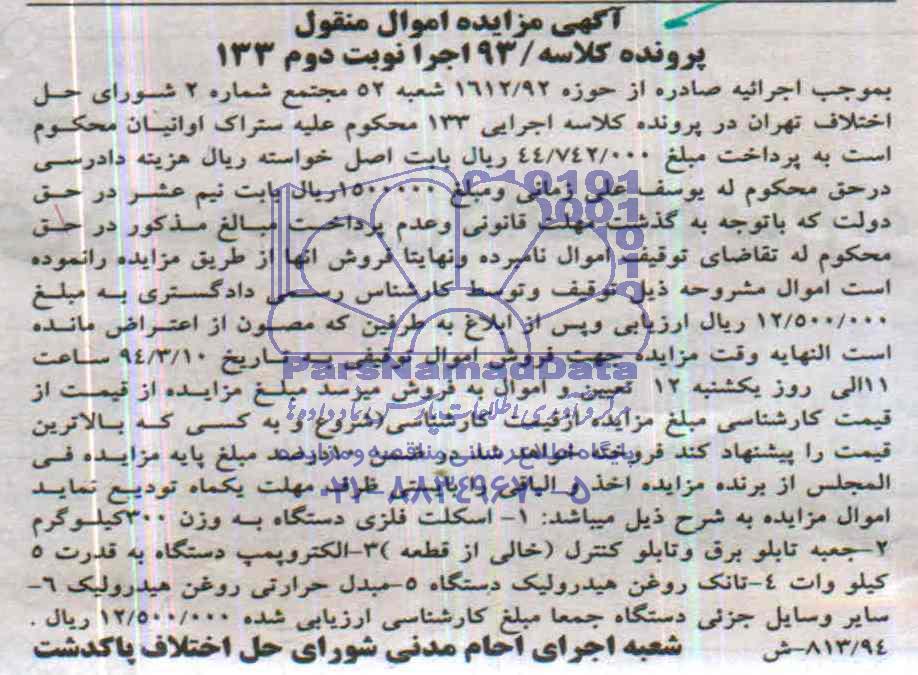 آگهی مزایده اموال منقول
پرونده کلاسه /۹۳ اجرا نوبت دوم ۱۳۳
بموجب اجرائیه صادره از حوزه ۱۶۱۲/۹۲ شعبه ۵۲ مجتمع شماره ۲ شورای حل
اختلاف تهران در پرونده کلاسه اجرایی ۱۳۳ محکوم علیه ستراک اوانیان محکوم
است به پرداخت مبلغ ۴۴/۷۴۲/۰۰۰ ریال بابت اصل خواسته ریال هزینه دادرسی
درحق محکوم له یوسف علی زمانی ومبلغ ۱۵۰۰۰۰۰ریال بابت نیم عشر در حق
دولت که باتوجه به گذشت مهلت قانونی وعدم پرداخت مبالغ مذکور در حق
محکوم له تقاضای توقیف اموال نامبرده ونهایتا فروش انها از طریق مزایده رانموده
است اموال مشروحه ذیل توقیف وتوسط کارشناس رسمی دادگستری به مبلغ
۱۲/۵۰۰/۰۰۰ ریال ارزیابی وپس از ابلاغ به طرفین که مصون از اعتراض مانده
است النهایه وقت مزایده جهت فروش اموال توقیفی به تاریخ ۹۴/۳/۱۰ ساعت
۱۱الی ۱۲ روز یکشنبه تعیین و اموال به فروش میرسد مبلغ مزایده از قیمت از
قیمت کارشناسی مبلغ مزایده ازقیمت کارشناسی شروع و به کسی که بالاترین
قیمت را پیشنهاد کند فروخته خواهد شد در ضمن ۱۰درصد مبلغ پایه مزایده فی
المجلس از برنده مزایده اخذ و الباقی را بایستی ظرف مهلت یکماه تودیع نماید
اموال مزایده به شرح ذیل میباشد: ۱- اسکلت فلزی دستگاه به وزن ۳۰۰کیلوگرم
۲-جعبه تابلو برق وتابلو کنترل (خالی از قطعه )۳-الکتروپمپ دستگاه به قدرت ۵
کیلو وات ۴-تانک روغن هیدرولیک دستگاه ۵-مبدل حرارتی روغن هیدرولیک ۶-
سایر وسایل جزئی دستگاه جمعا مبلغ کارشناسی ارزیابی شده ۱۲/۵۰۰/۰۰۰ ریال .
۸۱۳/۹۴-ش شعبه اجرای احام مدنی شورای حل اختلاف پاکدشت
ParsNamadData
مرکز فرآوری اطلاعات پارس نماد داده ها
پایگاه اطلاع رسانی مناقصه و مزایده
۰۲۱-۸۸۳۴۹۶۷۰-۵